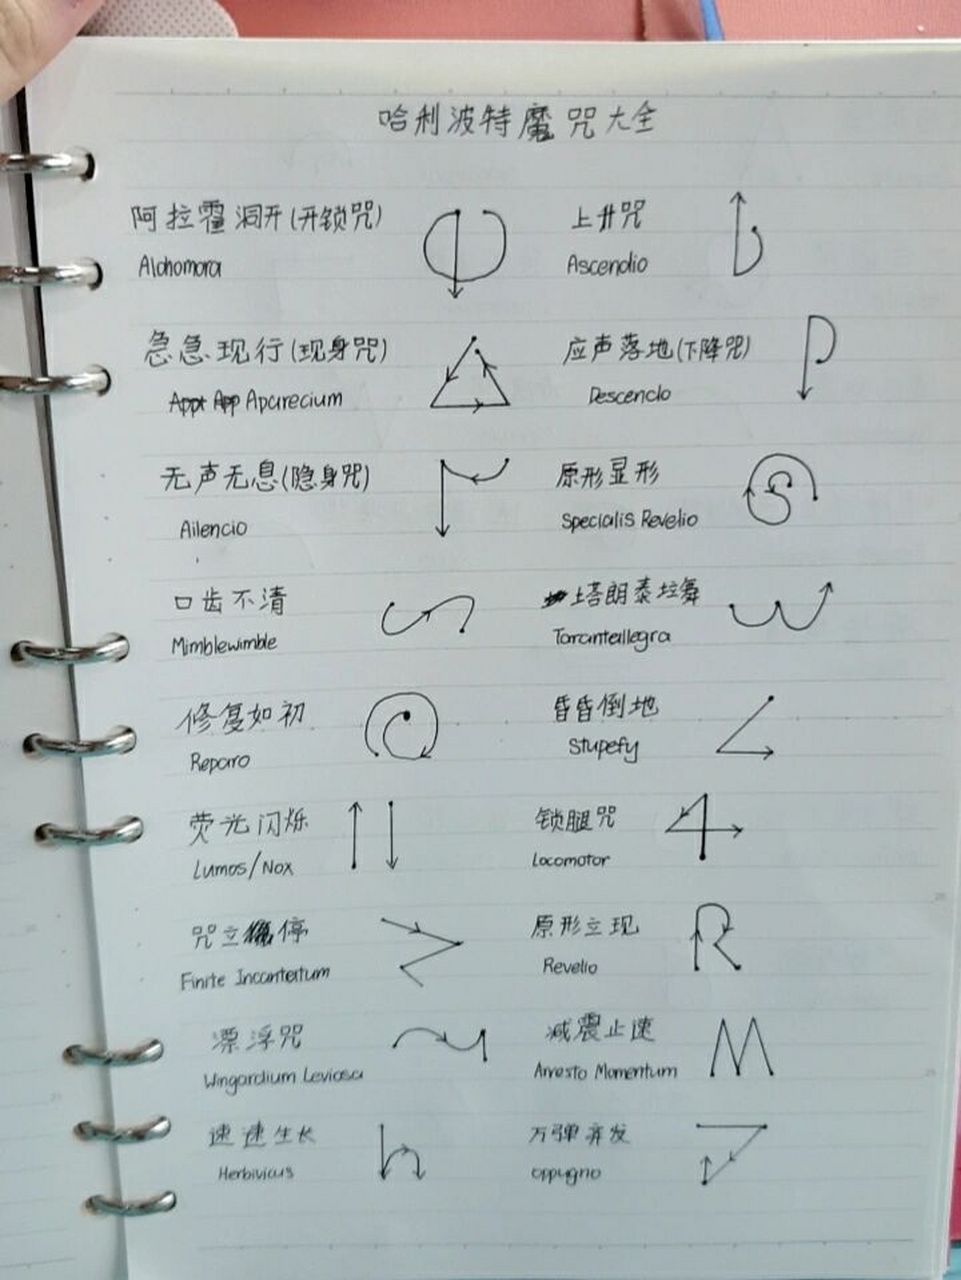 哈利波特魔咒大全
阿拉霍洞开(开锁咒)
Alohomora
上升咒
Ascendio
急急现行(现身咒)
Aparecium
应声落地(下降咒)
Descendo
无声无息(隐身咒)
Ailencio
原形显形
Specialis Revelio
口齿不清
Mimblewimble
塔朗泰拉舞
Tarantallegra
修复如初
Reparo
昏昏倒地
Stupefy
荧光闪烁
Lumos/Nox
锁腿咒
Locomotor
咒立停
Finite Incantertum
原形立现
Revelio
漂浮咒
Wingardium Leviosa
减震止速
Arresto Momentum
速速生长
Herbivicus
万弹齐发
Oppugno